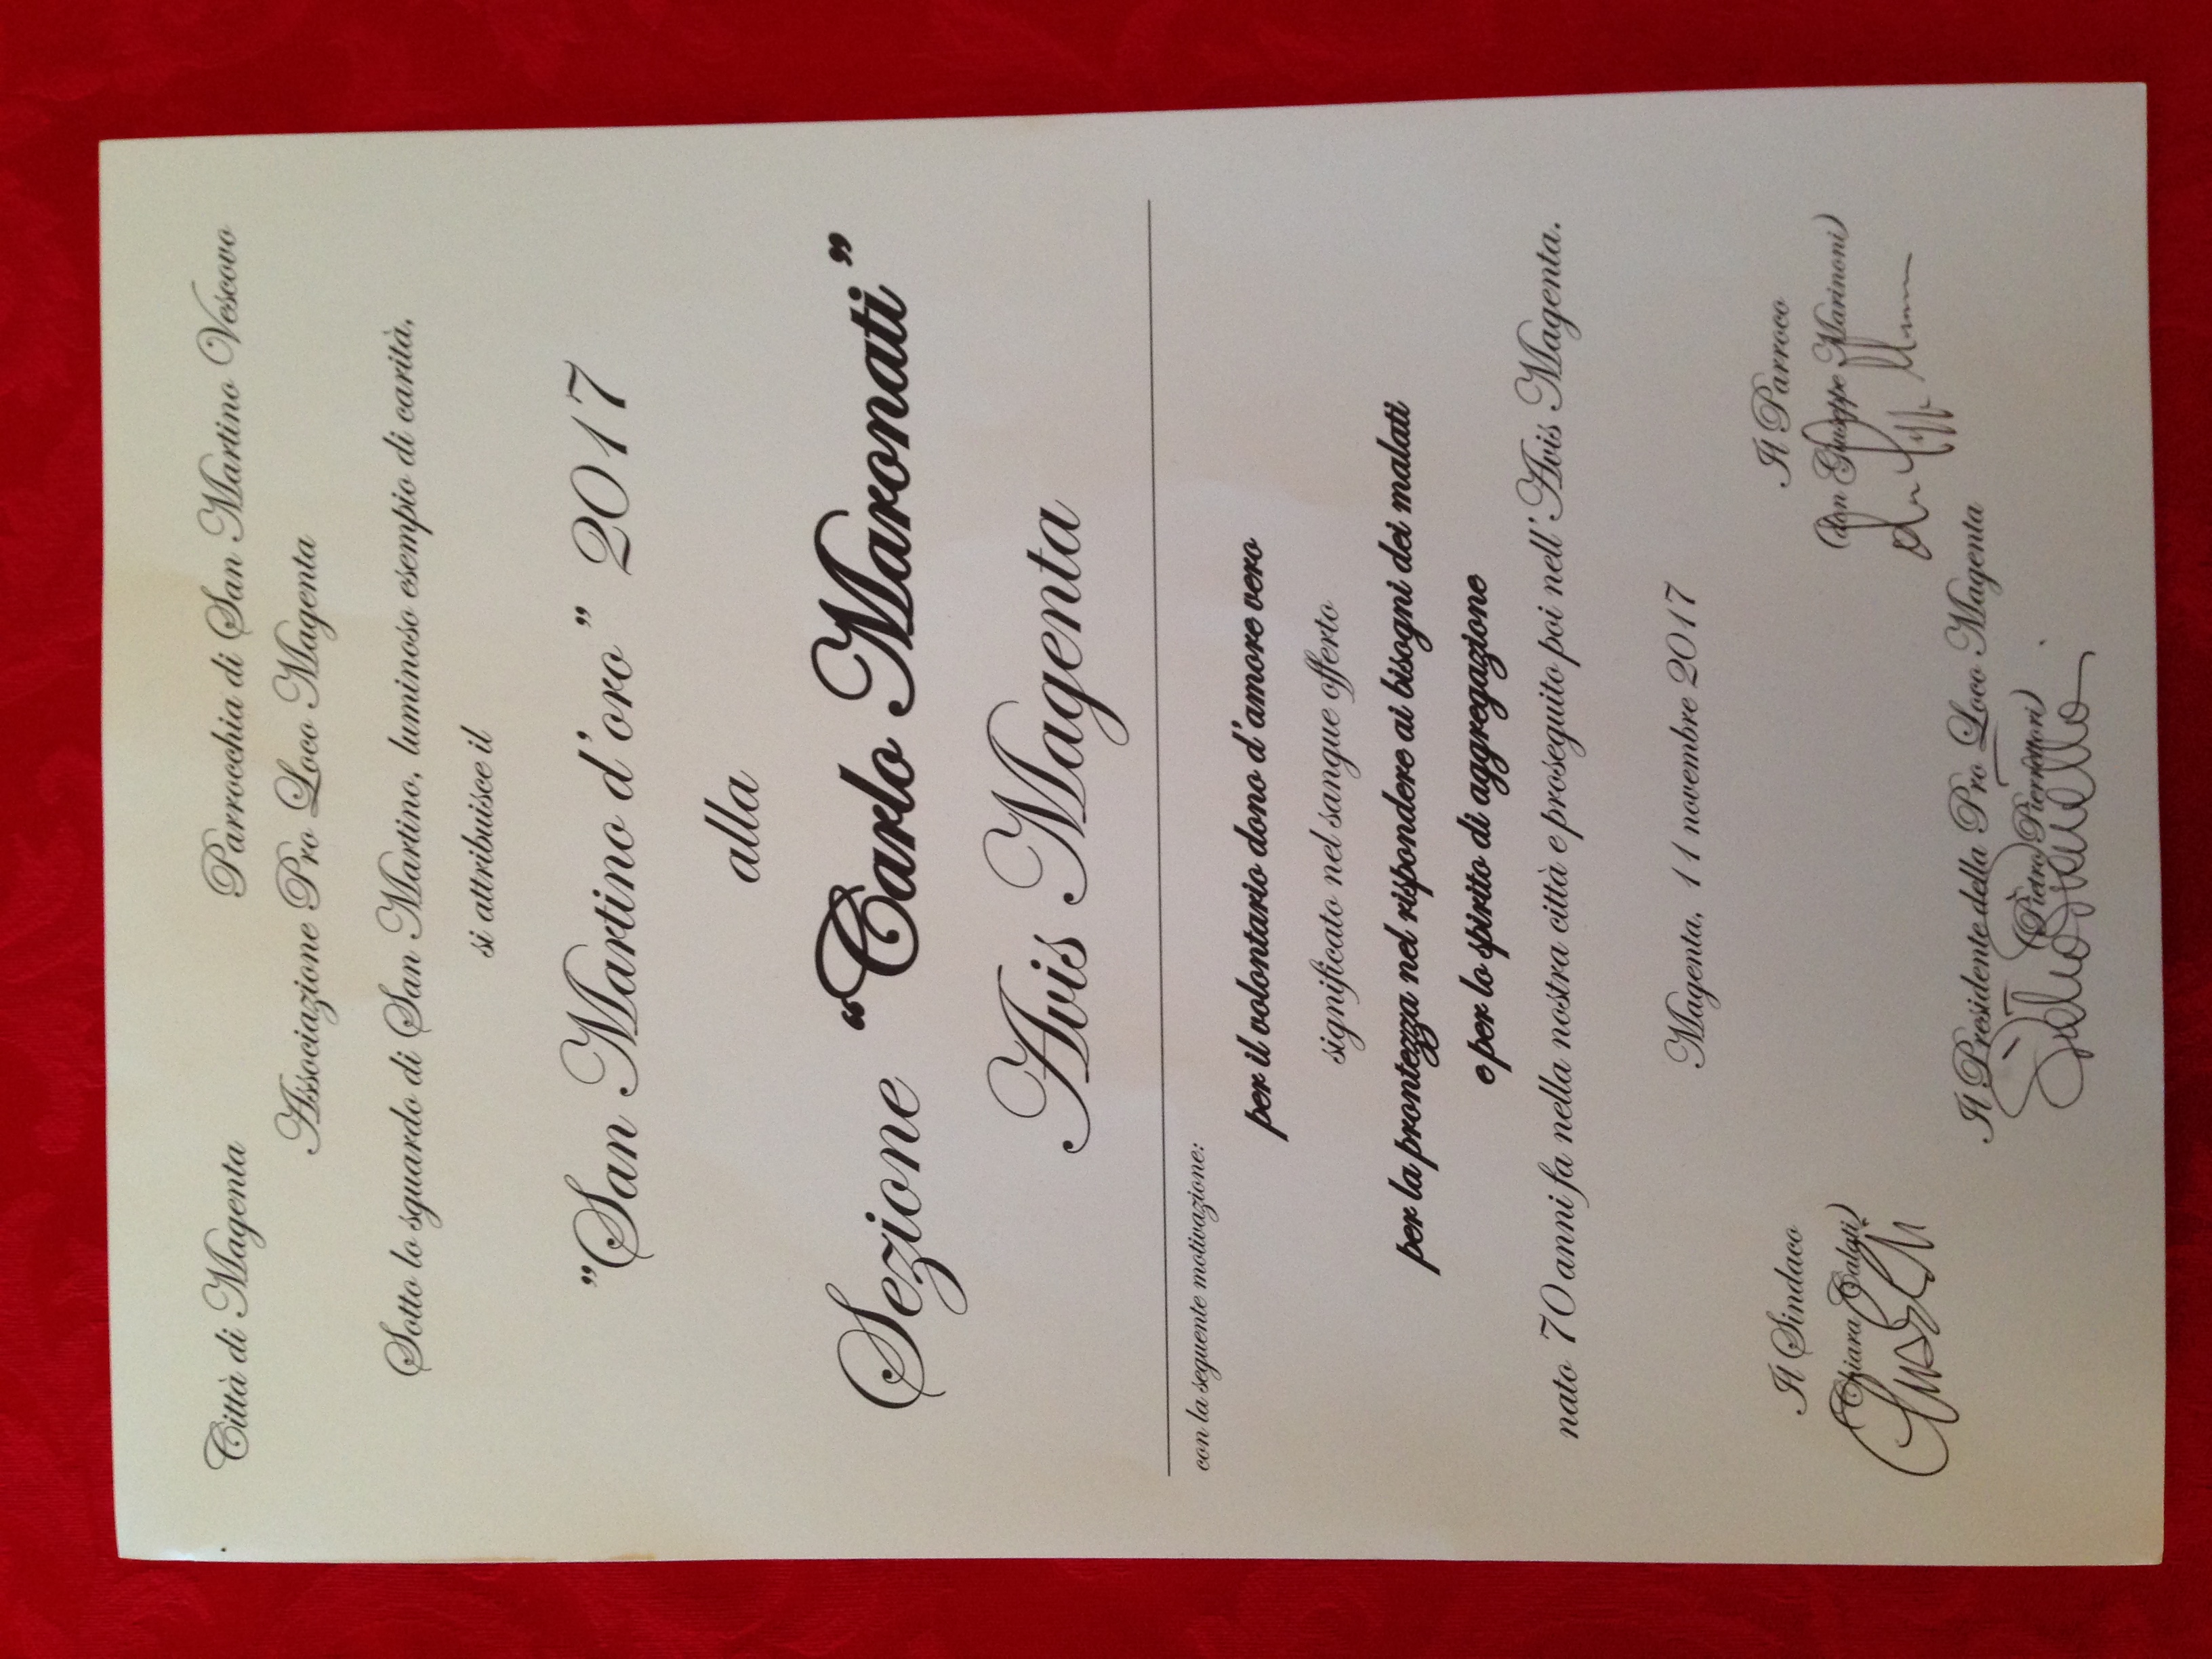 Città di Magenta Parrocchia di San Martino Vescovo
Associazione Pro Loco Magenta
Sotto lo sguardo di San Martino, luminoso esempio di carità,
si attribuisce il
"San Martino d'oro" 2017
alla
Sezione "Carlo Maronati"
Avis Magenta
con la seguente motivazione:
per il volontario dono d'amore vero
significato nel sangue offerto
per la prontezza nel rispondere ai bisogni dei malati
e per lo spirito di aggregazione
nato 70 anni fa nella nostra città e proseguito poi nell'Avis Magenta.
Magenta, 11 novembre 2017
Il Sindaco Il Parroco
(Chiara Calati) (don Giuseppe Marinoni)
Il Presidente della Pro Loco Magenta
(Pietro Pierrettori)